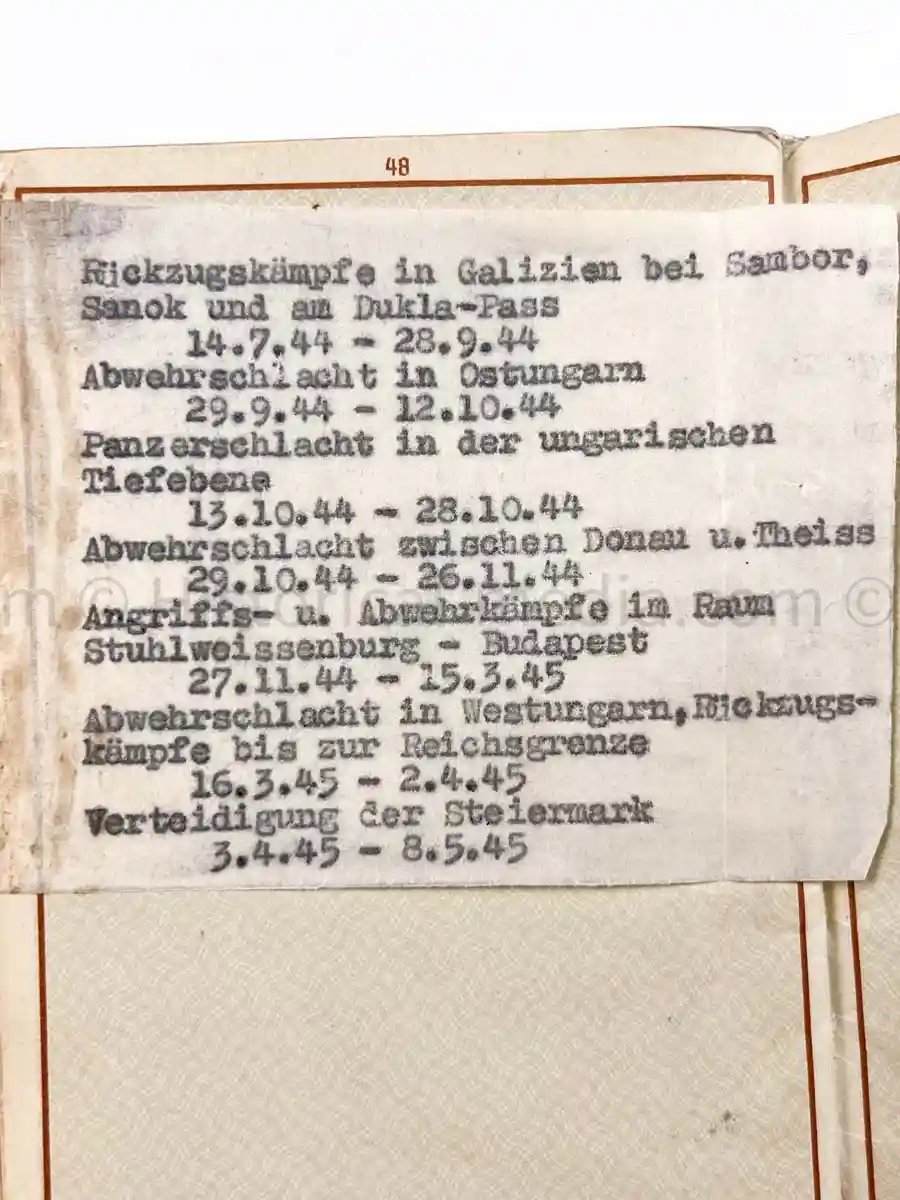 48
Rückzugskämpfe in Galizien bei Sambor,
Sanok und am Dukla-Pass
14.7.44 - 28.9.44
Abwehrschlacht in Ostungarn
29.9.44 - 12.10.44
Panzerschlacht in der ungarischen
Tiefebene
13.10.44 - 28.10.44
Abwehrschlacht zwischen Donau u. Theiss
29.10.44 - 26.11.44
Angriffs- u. Abwehrkämpfe im Raum
Stuhlweissenburg - Budapest
27.11.44 - 15.3.45
Abwehrschlacht in Westungarn, Rückzugs-
kämpfe bis zur Reichsgrenze
16.3.45 - 2.4.45
Verteidigung der Steiermark
3.4.45 - 8.5.45